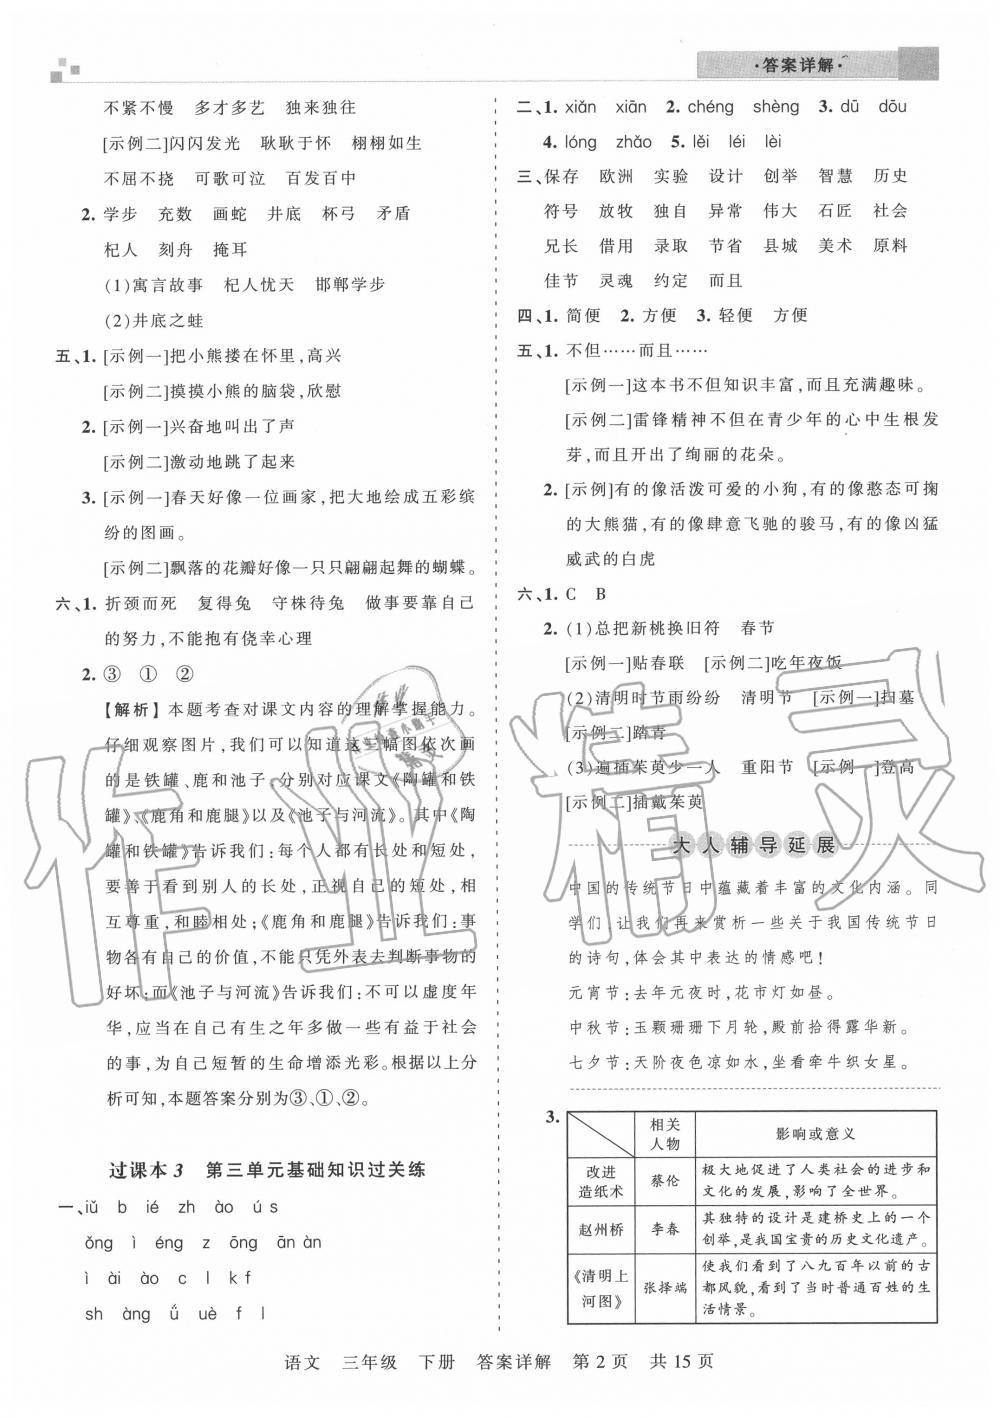 ·答案详解·
不紧不慢 多才多艺 独来独往
[示例二]闪闪发光 耿耿于怀 栩栩如生
不屈不挠 可歌可泣 百发百中
2. 学步 充数 画蛇 井底 杯弓 矛盾
杞人 刻舟 掩耳
(1)寓言故事 杞人忧天 邯郸学步
(2)井底之蛙
五、1. [示例一]把小熊搂在怀里,高兴
[示例二]摸摸小熊的脑袋,欣慰
2. [示例一]兴奋地叫出了声
[示例二]激动地跳了起来
3. [示例一]春天好像一位画家,把大地绘成五彩缤
纷的图画。
[示例二]飘落的花瓣好像一只只翩翩起舞的蝴蝶。
六、1. 折颈而死 复得兔 守株待兔 做事要靠自己
的努力,不能抱有侥幸心理
2. ③ ① ②
【解析】本题考查对课文内容的理解掌握能力。
仔细观察图片,我们可以知道这三幅图依次画
的是铁罐、鹿和池子,分别对应课文《陶罐和铁
罐》、《鹿角和鹿腿》以及《池子与河流》。其中《陶
罐和铁罐》告诉我们:每个人都有长处和短处,
要善于看到别人的长处,正视自己的短处,相
互尊重,和睦相处;《鹿角和鹿腿》告诉我们:事
物各有自己的价值,不能只凭外表去判断事物的
好坏;而《池子与河流》告诉我们:不可以虚度年
华,应当在自己有生之年多做一些有益于社会
的事,为自己短暂的生命增添光彩。根据以上分
析可知,本题答案分别为③、①、②。
过课本 3 第三单元基础知识过关练
一、iǔ b ié zh ào ú s
ǒng ì éng z ōng ān àn
ì ài ào c l k f
sh àng ǘ uè f l
二、1. xiǎn xiān 2. chéng shèng 3. dū dōu
4. lóng zhǎo 5. lěi léi lèi
三、保存 欧洲 实验 设计 创举 智慧 历史
符号 放牧 独自 异常 伟大 石匠 社会
兄长 借用 录取 节省 县城 美术 原料
佳节 灵魂 约定 而且
四、1. 简便 2. 方便 3. 轻便 方便
五、1. 不但……而且……
[示例一]这本书不但知识丰富,而且充满趣味。
[示例二]雷锋精神不但在青少年的心中生根发
芽,而且开出了绚丽的花朵。
2. [示例]有的像活泼可爱的小狗,有的像憨态可掬
的大熊猫,有的像肆意飞驰的骏马,有的像凶猛
威武的白虎
六、1. C B
2. (1)总把新桃换旧符 春节
[示例一]贴春联 [示例二]吃年夜饭
(2)清明时节雨纷纷 清明节 [示例一]扫墓
[示例二]踏青
(3)遍插茱萸少一人 重阳节 [示例一]登高
[示例二]插戴茱萸
大人辅导延展
中国的传统节日中蕴藏着丰富的文化内涵。同
学们,让我们再来赏析一些关于我国传统节日
的诗句,体会其中表达的情感吧!
元宵节:去年元夜时,花市灯如昼。
中秋节:玉颗珊珊下月轮,殿前拾得露华新。
七夕节:天阶夜色凉如水,坐看牵牛织女星。
3.
相关
人物 影响或意义
改进
造纸术 蔡伦 极大地促进了人类社会的进步和
文化的发展,影响了全世界。
赵州桥 李春 其独特的设计是建桥史上的一个
创举,是我国宝贵的历史文化遗产。
《清明上
河图》 张择端 使我们看到了八九百年以前的古
都风貌,看到了当时普通百姓的生
活情景。
语文 三年级 下册 答案详解 第 2 页 共 15 页
作业精灵